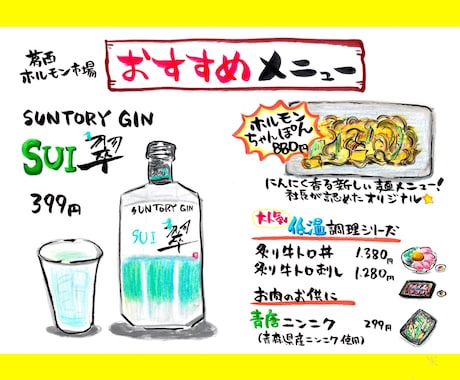 葛西
ホルモン市場
おすすめメニュー
SUNTORY GIN
SUI 翠
399円
SUNTORY GIN
SUI 翠
ホルモン
ちゃんぽん
880円
にんにく香る新しい麺メニュー!
社長が認めたオリジナル
大人気 低温調理シリーズ
炙り牛トロ丼 1.380円
炙り牛トロ刺し 1.280円
お肉のお供に
青唐ニンニク 299円
(青森県産ニンニク使用)